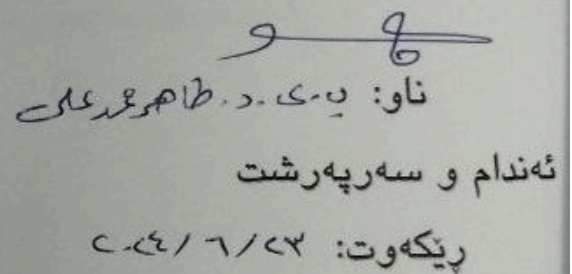 ناو: پ.ی.د. طاهر محمد علی
ئەندام و سەرپەرشت
ڕێکەوت: ٢٠٢٤/٦/٢٣